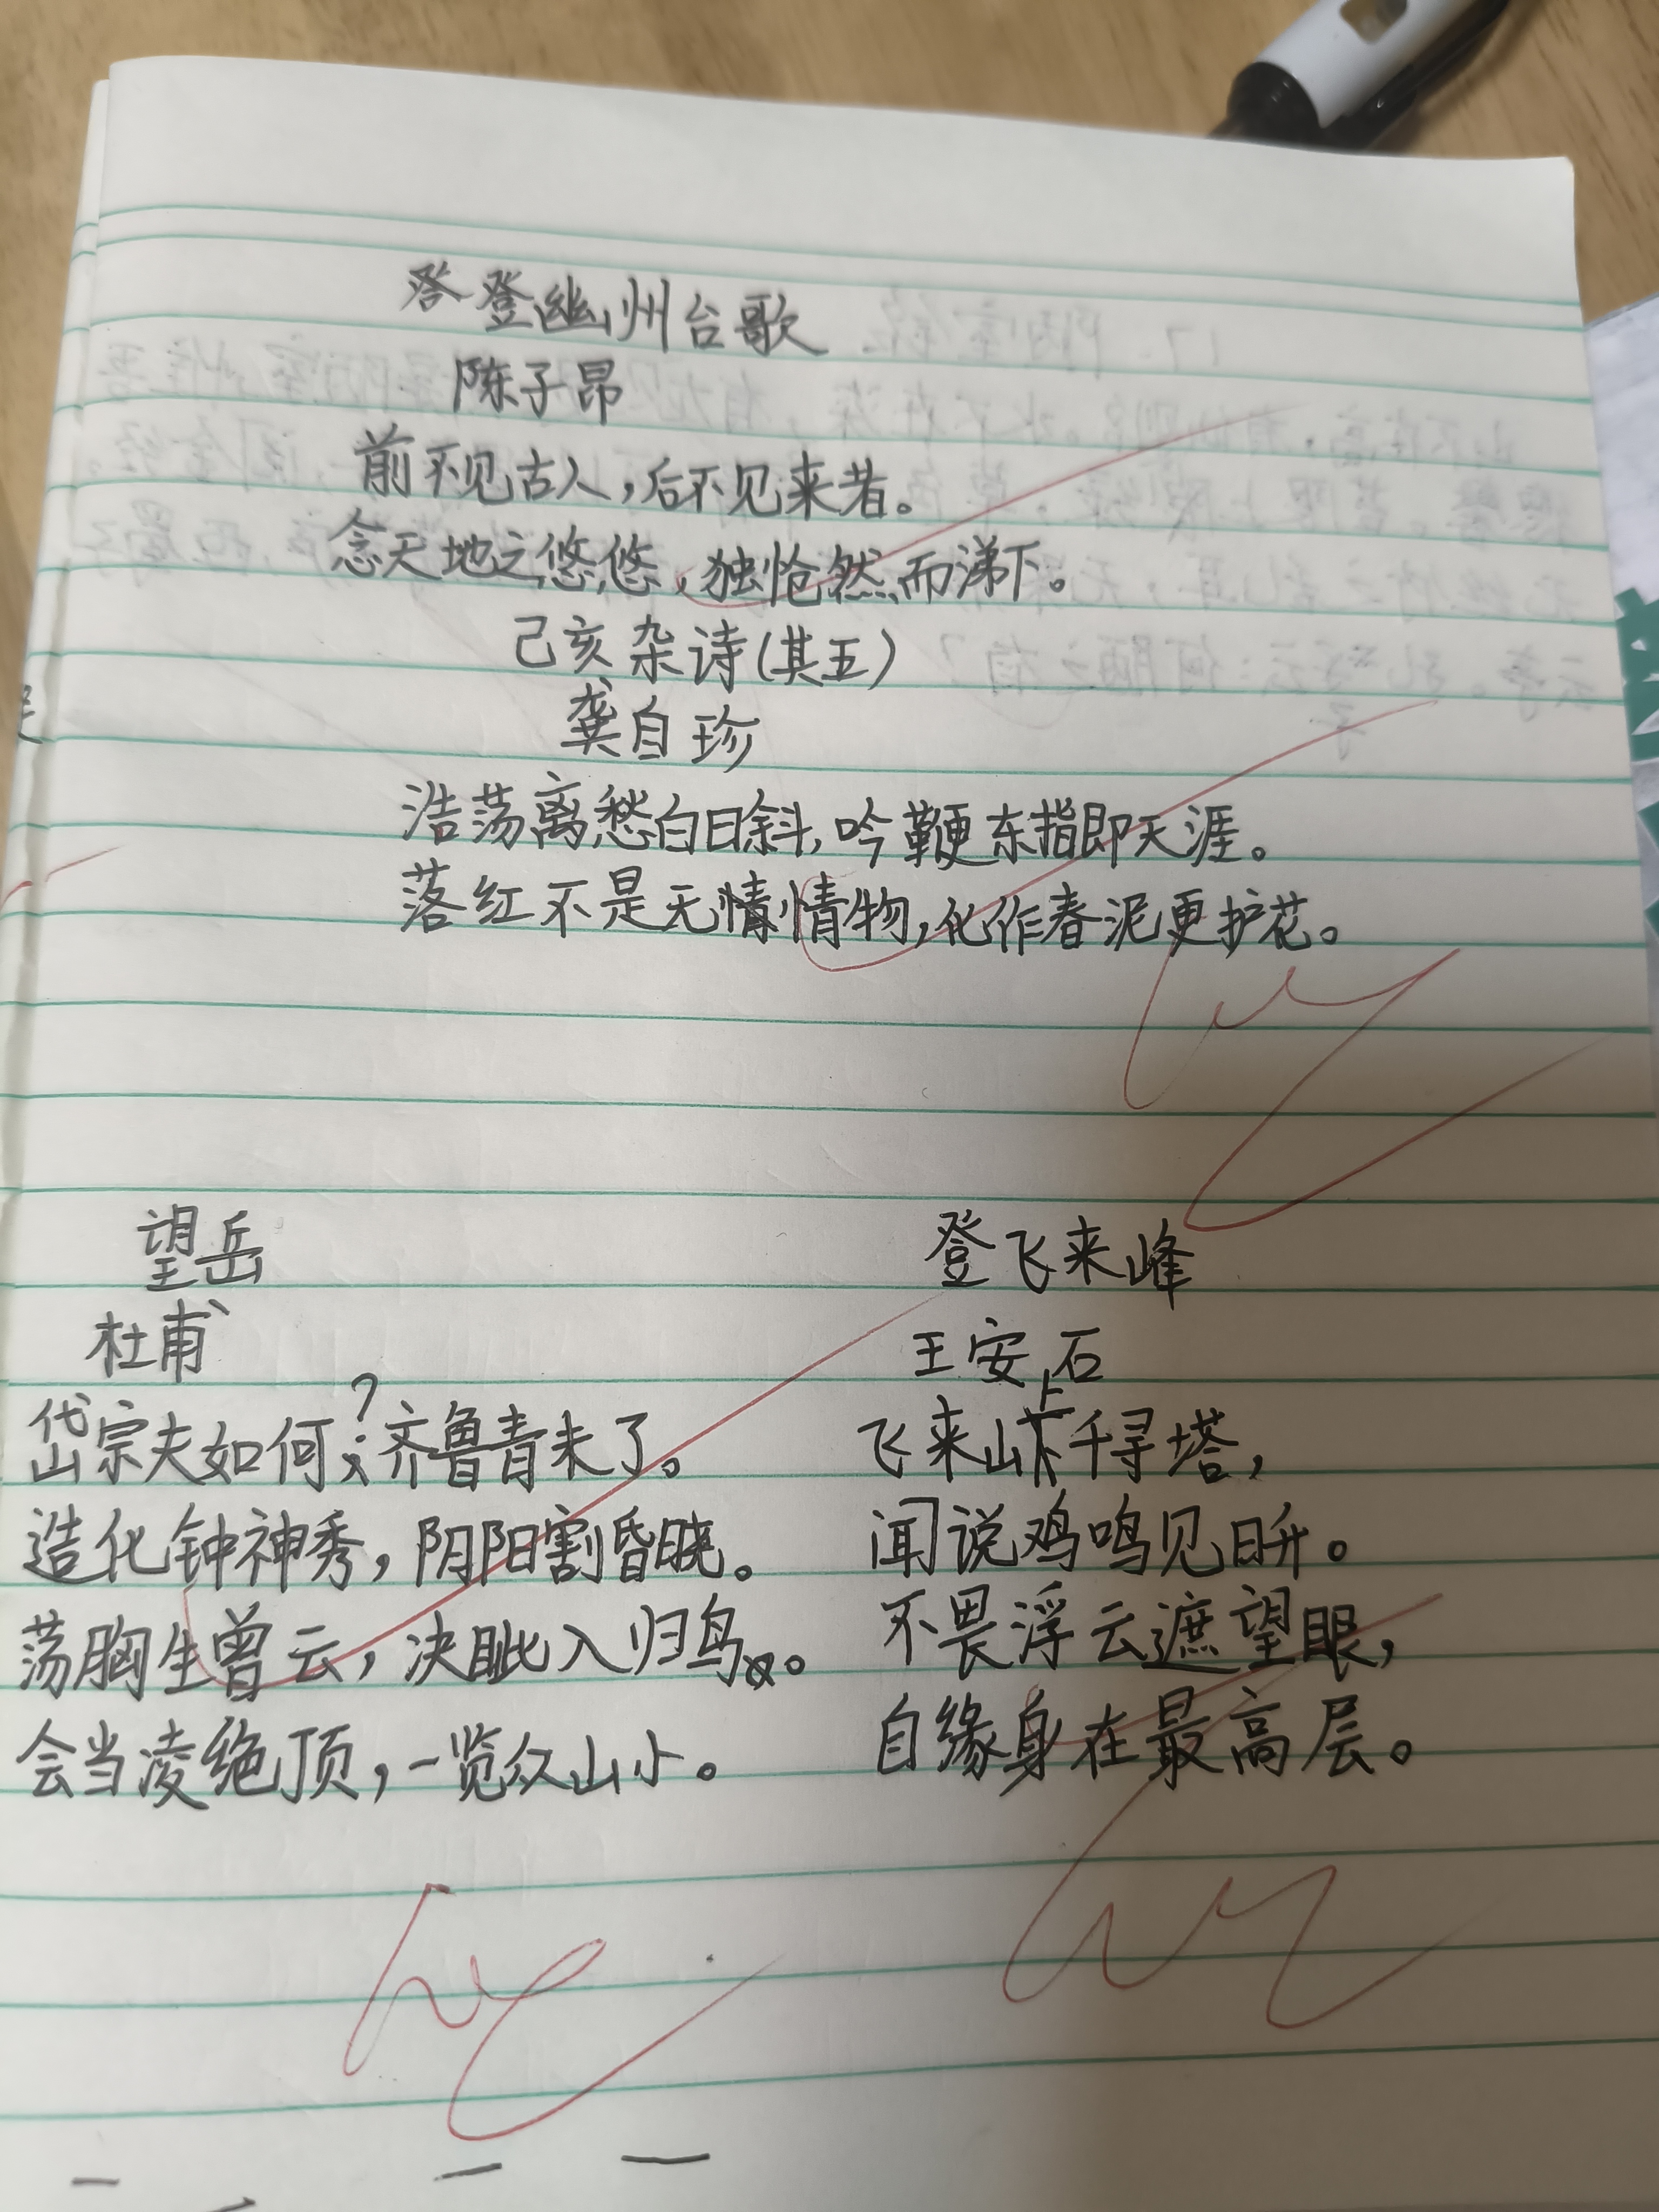 登幽州台歌
陈子昂
前不见古人,后不见来者。
念天地之悠悠,独怆然而涕下。
己亥杂诗(其五)
龚自珍
浩荡离愁白日斜,吟鞭东指即天涯。
落红不是无情物,化作春泥更护花。
望岳
杜甫
岱宗夫如何?齐鲁青未了。
造化钟神秀,阴阳割昏晓。
荡胸生曾云,决眦入归鸟。
会当凌绝顶,一览众山小。
登飞来峰
王安石
飞来山上千寻塔,
闻说鸡鸣见日升。
不畏浮云遮望眼,
自缘身在最高层。